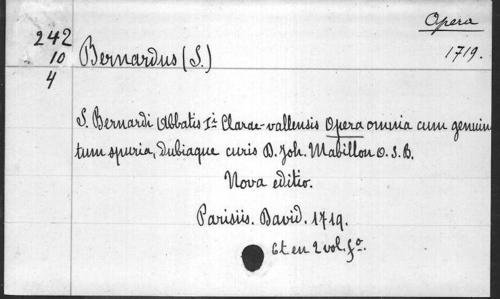 Opera
242
10
4
Bernardus (S.)
1719.
S. Bernardi Abbatis Iⁱ Clarae-vallensis Opera omnia cum genuin
tum spuria, dubiaque curis D. Joh. Mabillon O. S. B.
Nova editio.
Parisiis. David. 1719.
6 t en 2 vol. fo.